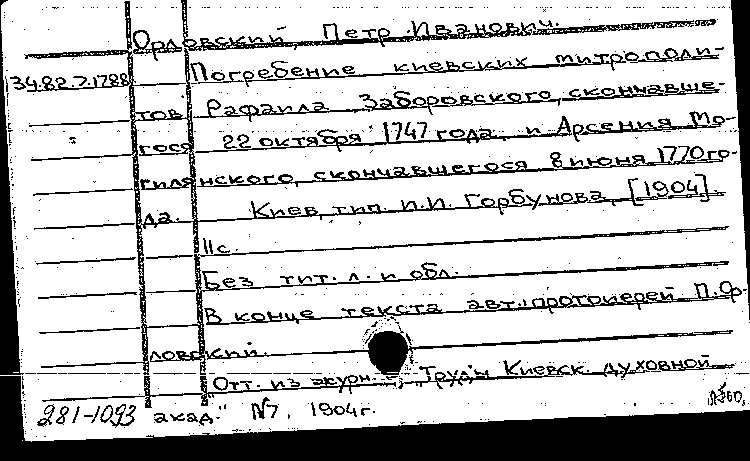 Орловский, Петр Иванович.
34.82.7.1788
Погребение киевских митрополи-
тов Рафаила Заборовского, скончавше-
гося 22 октября 1747 года, и Арсения Мо-
гилянского, скончавшегося 8 июня 1770 го-
да. Киев, тип. И.И. Горбунова, [1904].
11с.
Без тит. л. и обл.
В конце текста авт.: протоиерей П. Ор-
ловский.
"Отт. из журн. "Труды Киевск. духовной
281-1093 акад." №7, 1904г.